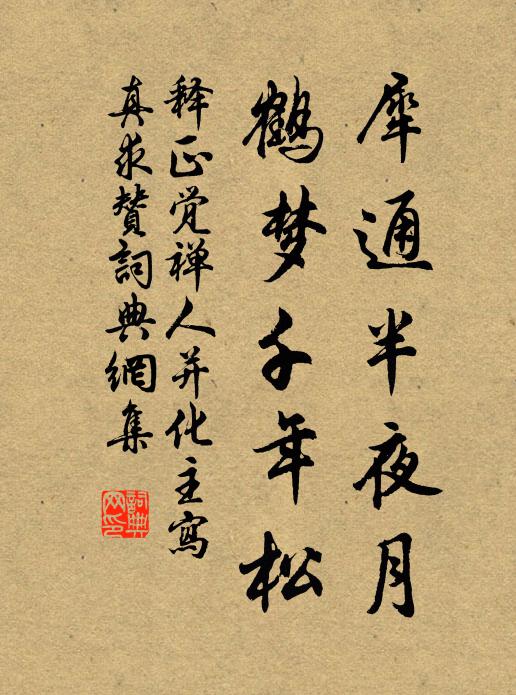 犀通半夜月
鹤梦千年松
释正觉禅人并化主寫
真求赞詞典網集
詞典网印